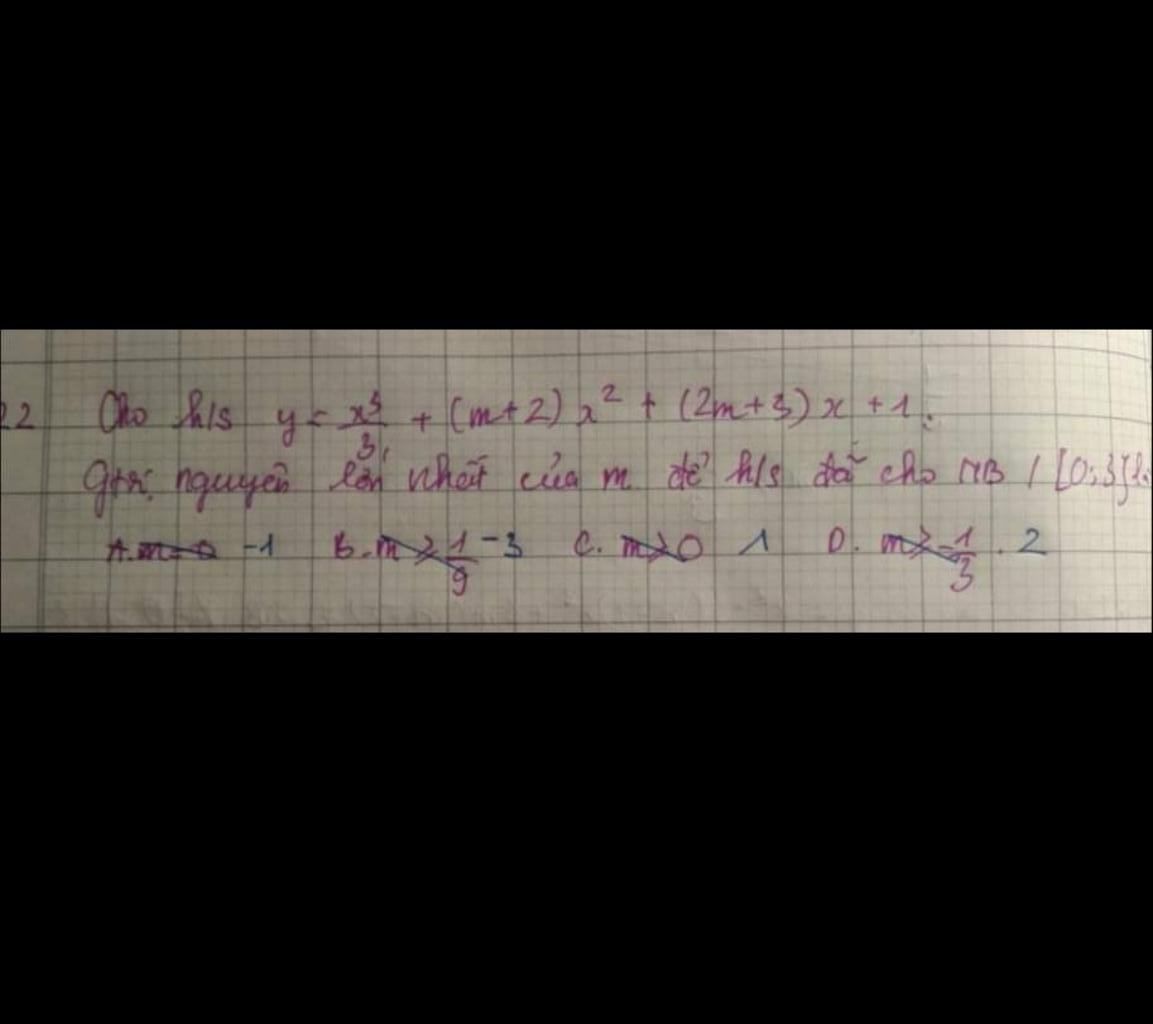 22 Cho h/s y = x³/3 + (m+2)x² + (2m+3)x + 1.
Gtrị nguyên lớn nhất của m để h/s đã cho NB / [0;3] là
A. m=0 -1 B. m ≥ 1/9 -3 C. m≥0 1 D. m ≥ -1/3 . 2